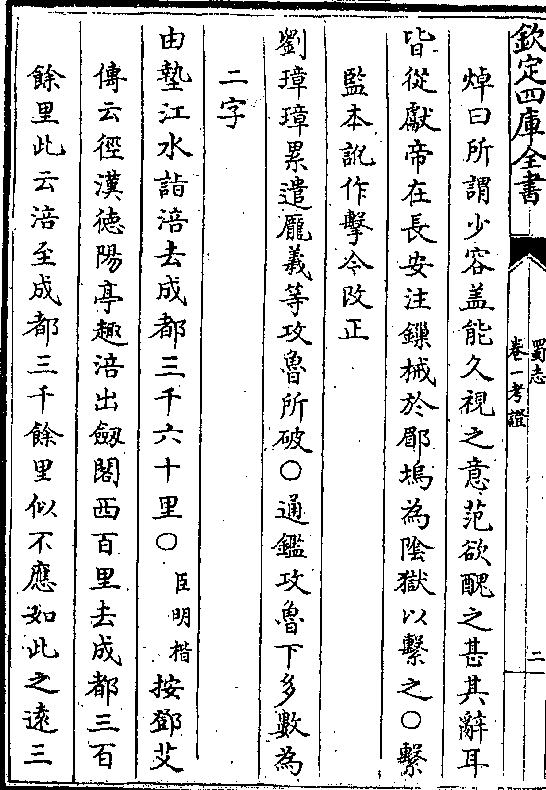 欽定四庫全書
蜀志
卷一考證
二
焯曰所謂少容盖能久視之意范欲醜之甚其辭耳
皆從獻帝在長安注鏁械於郿塢為陰獄以繫之○繫
監本訛作擊今改正
劉璋璋累遣龎羲等攻魯所破○通鑑攻魯下多數為
二字
由墊江水詣涪去成都三千六十里○臣明楷按鄧艾
傳云徑漢德陽亭趣涪出劒閣西百里去成都三百
餘里此云涪至成都三千餘里似不應如此之遠三